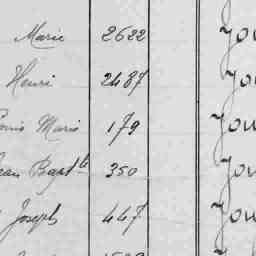 Marie 2622 Jou
Henri 2487 Jou
Louis Marie 179 Jou
Jean Bapt^te 350 Jou
Joseph 447 Jou